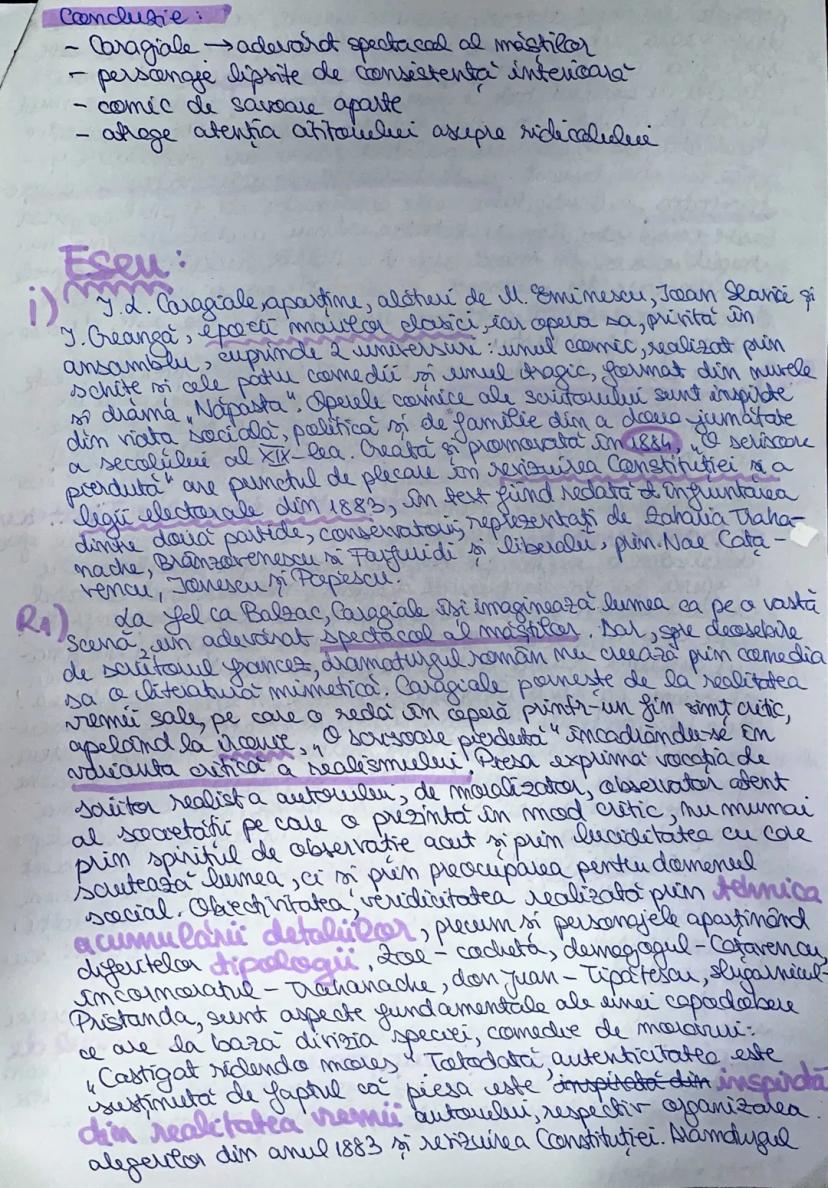 Concluzie:
- Caragiale → adevărat spectacol al măștilor
- personaje lipsite de consistență interioară
- comic de savoare aparte
- atrage atenția cititorului asupra ridicolului
Eseu:
i) I. L. Caragiale, aparține, alături de M. Eminescu, Ioan Slavici și
I. Creangă, epocii marilor clasici, iar opera sa, privită în
ansamblu, cuprinde 2 universuri: unul comic, realizat prin
schite si cele patru comedii si unul tragic, format din nuvele
si drama "Năpasta". Operele comice ale scriitorului sunt inspirate
din viata socială, politică si de familie din a doua jumătate
a secolului al XIX-lea. Creată și promovată în 1884, "O scrisoare
pierdută" are punctul de plecare în revizuirea Constituției și a
legii electorale din 1883, în text fiind redată înfruntarea
dintre două partide, conservatorii, reprezentați de Zaharia Traha-
nache, Brânzovenescu si Farfuridi și liberalii, prin Nae Cața-
vencu, Ionescu și Popescu.
R1) La fel ca Balzac, Caragiale își imaginează lumea ca pe o vastă
scenă, un adevărat spectacol al măștilor. Dar, spre deosebire
de scriitorul francez, dramaturgul român nu creează prin comedia
sa o literatură mimetică. Caragiale pornește de la realitatea
vremii sale, pe care o redă în operă printr-un fin simț critic,
apelând la ironie, "O scrisoare pierdută" încadrându-se în
varianta critică a realismului. Piesa exprimă vocația de
scriitor realist a autorului, de moralizator, observator atent
al societății pe care o prezintă în mod critic, nu numai
prin spiritul de observație acut și prin luciditatea cu care
scrutează lumea, ci si prin preocuparea pentru domeniul
social. Obiectivitatea, veridicitatea realizată prin tehnica
acumulării detaliilor, precum si personajele aparținând
diferitelor tipologii, Zoe - cocheta, demagogul - Cațavencu,
incornoratul - Trahanache, don Juan - Tipătescu, slugarnicul-
Pristanda, sunt aspecte fundamentale ale unei capodopere
ce are la bază diviza speciei, comedie de moravuri:
"Castigat ridendo mores". Totodată, autenticitatea este
susținută de faptul că piesa este inspirată din inspirată
din realitatea vremii autorului, respectiv organizarea
alegerilor din anul 1883 și revizuirea Constituției. Dramaturgul